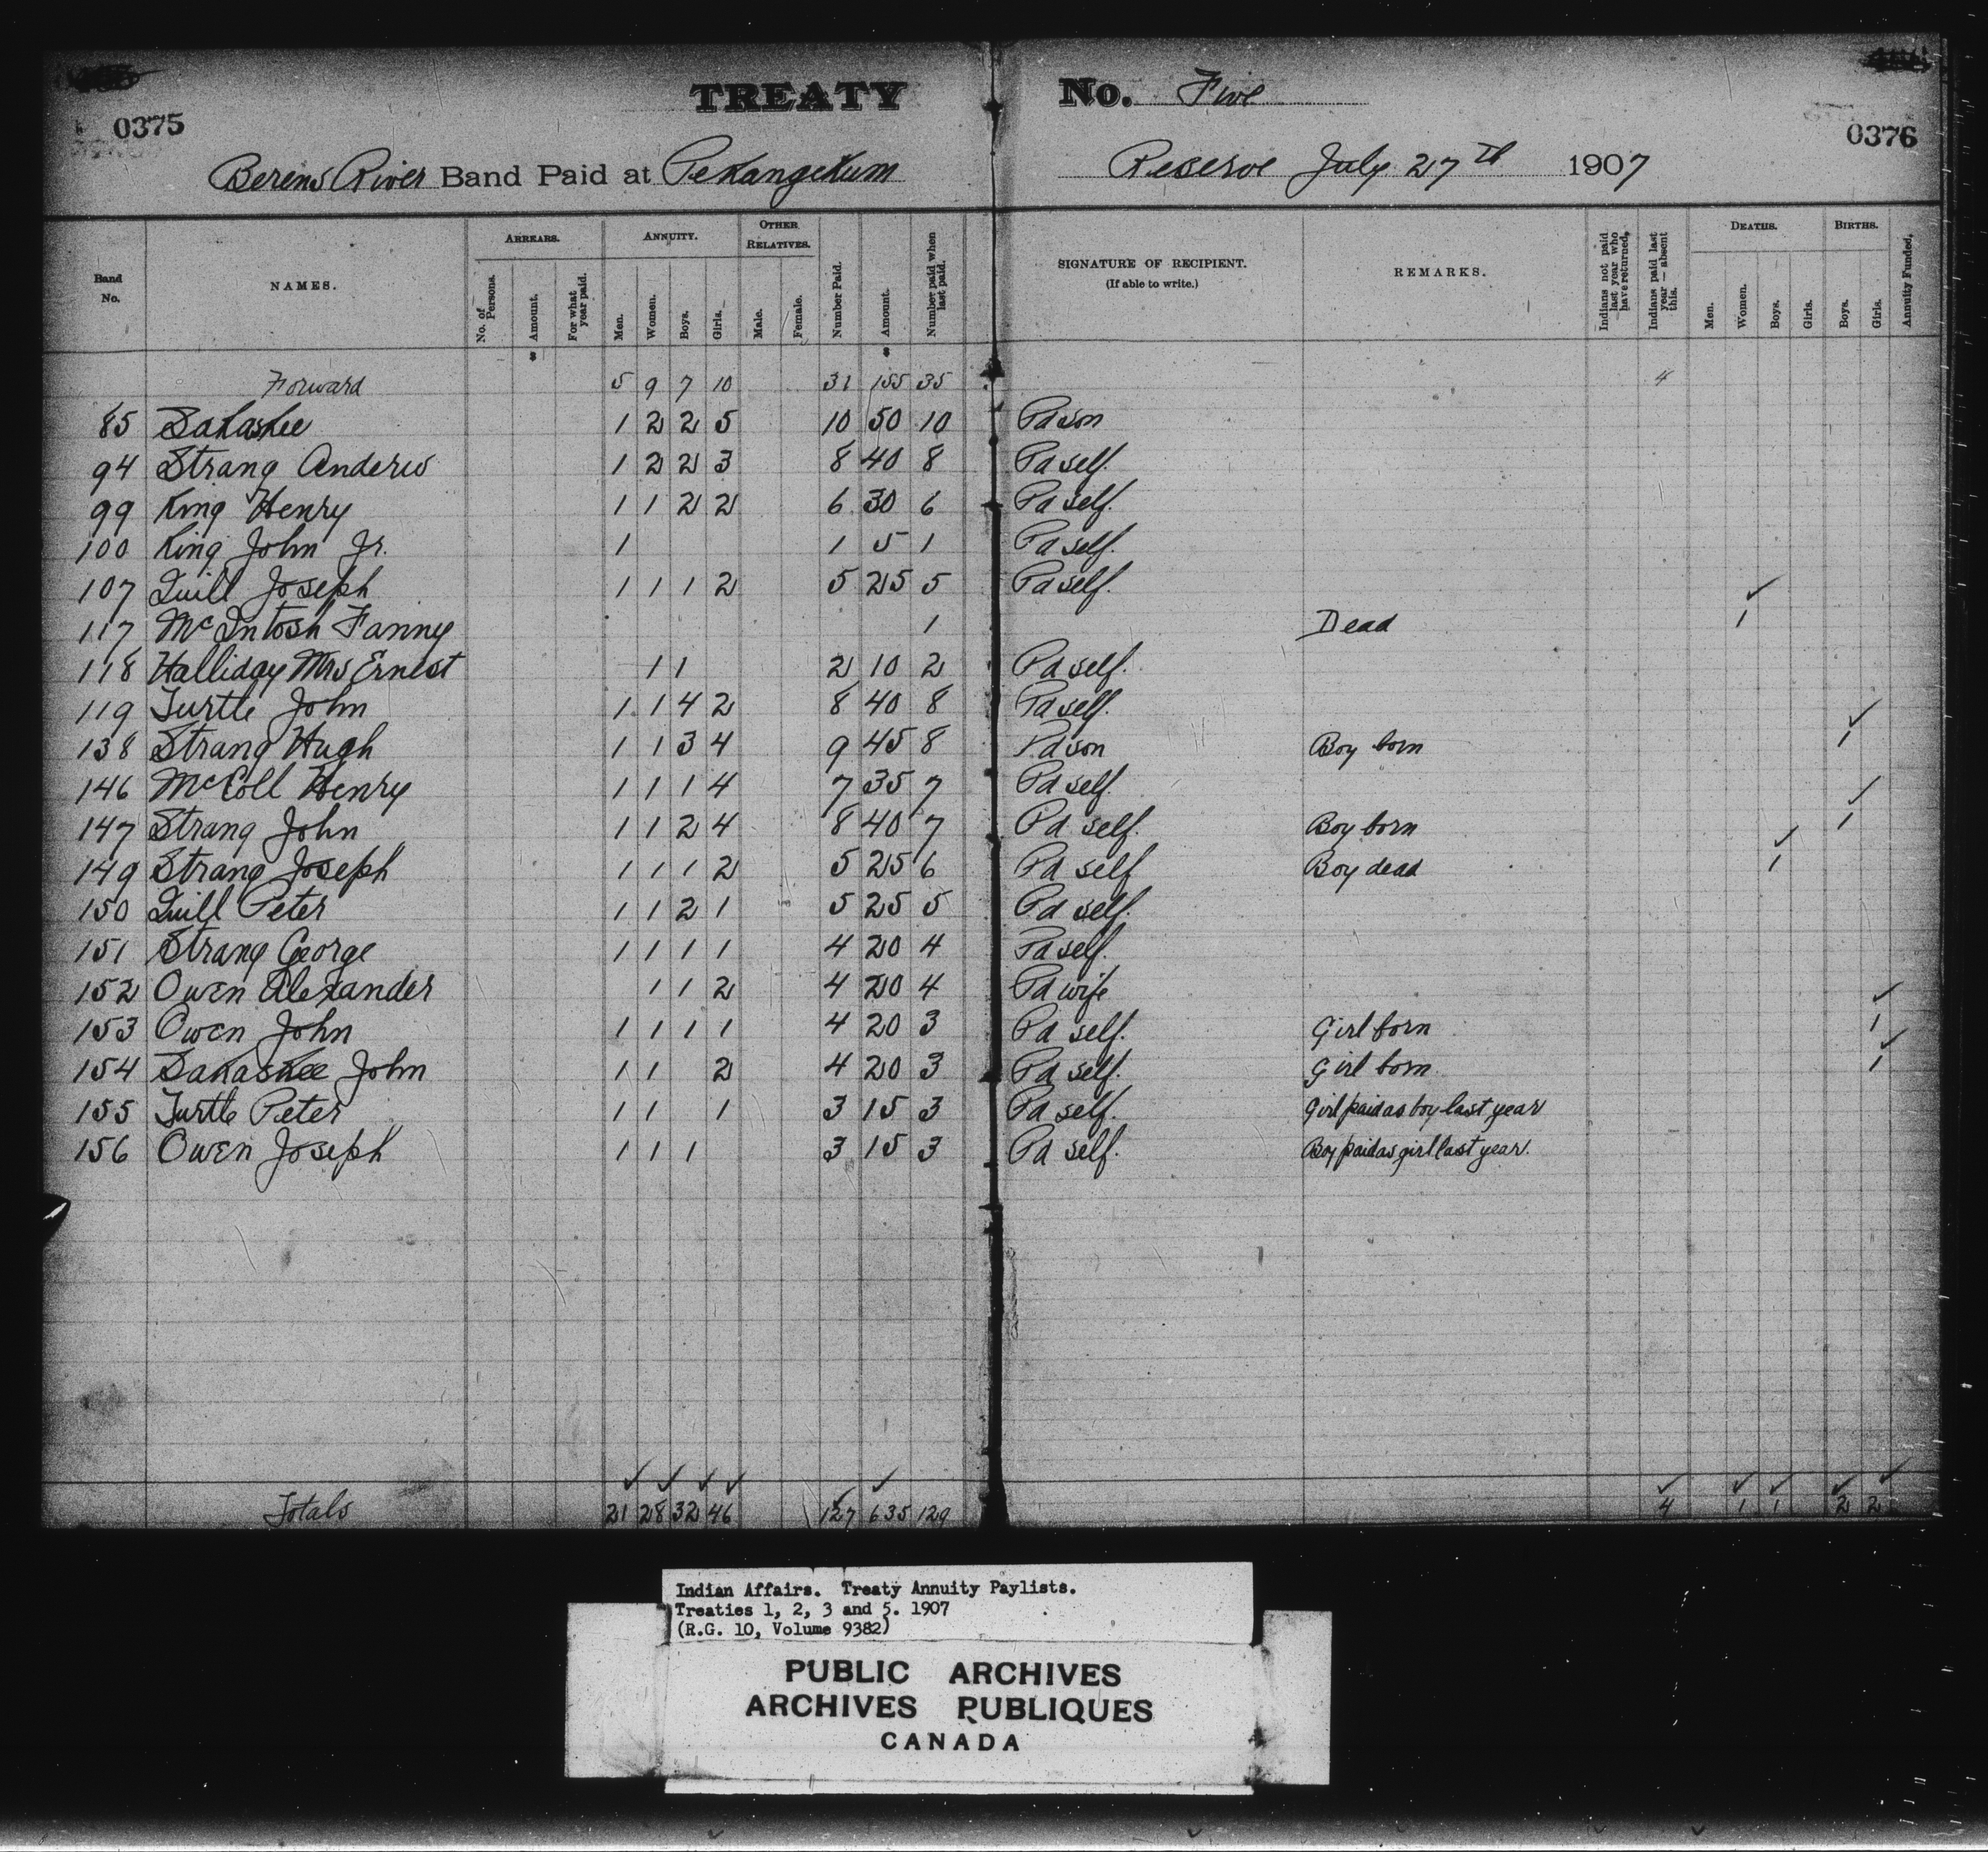 TREATY No. Five
0375 0376
Berens River Band Paid at Pekangekum Reserve July 27th 1907
Band No. NAMES. ARREARS. No. of Persons. Amount. For what year paid. ANNUITY. Men. Women. Boys. Girls. OTHER RELATIVES. Male. Female. Number Paid. Amount. Number paid when last paid. SIGNATURE OF RECIPIENT. (If able to write.) REMARKS. Indians not paid last year who have returned. Indians paid last year — absent this. DEATHS. Men. Women. Boys. Girls. BIRTHS. Boys. Girls. Annuity Funded.
Forward 5 9 7 10 31 155 35 4
85 Sakaskee 1 2 2 5 10 50 10 Pd son
94 Strang Anderw 1 2 2 3 8 40 8 Pd self.
99 King Henry 1 1 2 2 6 30 6 Pd self.
100 King John Jr. 1 1 5 1 Pd self.
107 Quill Joseph 1 1 1 2 5 25 5 Pd self.
117 McIntosh Fanny 1 Dead 1
118 Halliday Mrs Ernest 1 1 2 10 2 Pd self.
119 Turtle John 1 1 4 2 8 40 8 Pd self.
138 Strang Hugh 1 1 3 4 9 45 8 Pd son Boy born 1
146 McColl Henry 1 1 1 4 7 35 7 Pd self.
147 Strang John 1 1 2 4 8 40 7 Pd self. Boy born 1
149 Strang Joseph 1 1 1 2 5 25 6 Pd self Boy dead 1
150 Quill Peter 1 1 2 1 5 25 5 Pd self.
151 Strang George 1 1 1 1 4 20 4 Pd self.
152 Owen Alexander 1 1 2 4 20 4 Pd wife
153 Owen John 1 1 1 1 4 20 3 Pd self. Girl born 1
154 Sakaskee John 1 1 2 4 20 3 Pd self. Girl born 1
155 Turtle Peter 1 1 1 3 15 3 Pd self. Girl paid as boy last year
156 Owen Joseph 1 1 1 3 15 3 Pd self. Boy paid as girl last year.
Totals 21 28 32 46 127 635 129 4 1 1 2 2
Indian Affairs. Treaty Annuity Paylists.
Treaties 1, 2, 3 and 5. 1907
(R.G. 10, Volume 9382)
PUBLIC ARCHIVES
ARCHIVES PUBLIQUES
CANADA